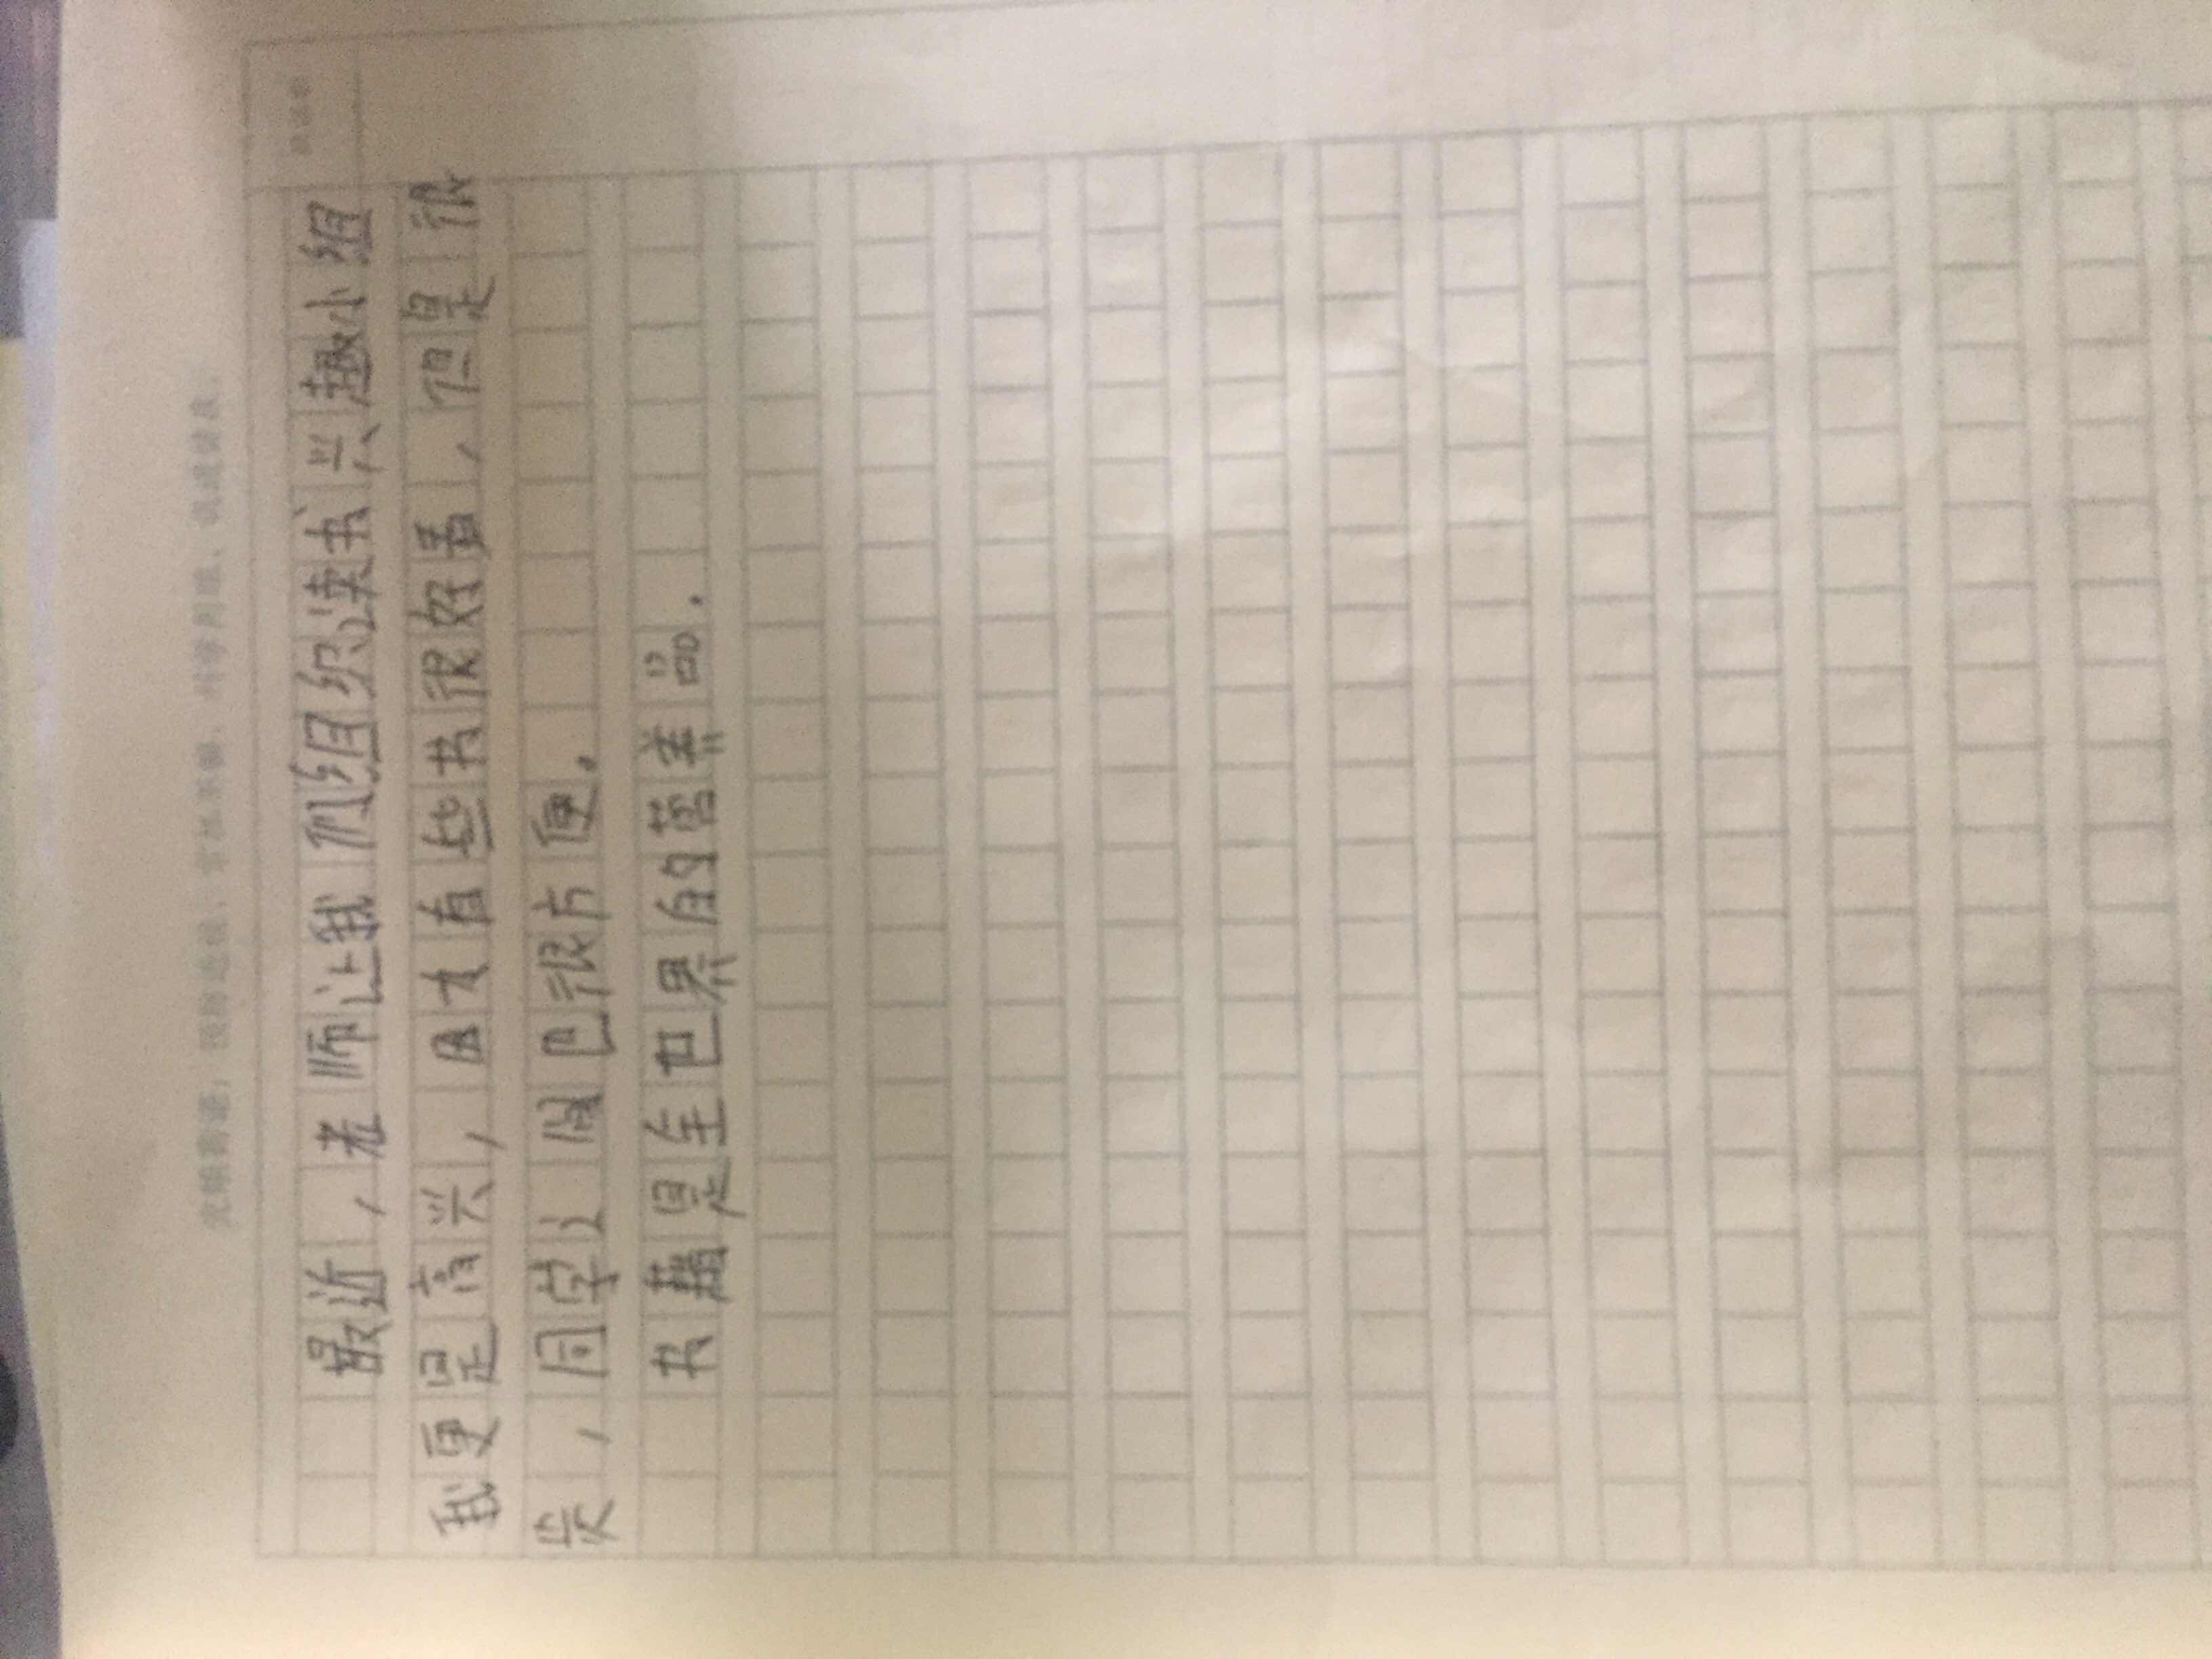 最近，老师让我们组织读书兴趣小组
我更是高兴，因才有些书很好看，但是很
贵，同学之间也很方便。
书籍是全世界的营养品.